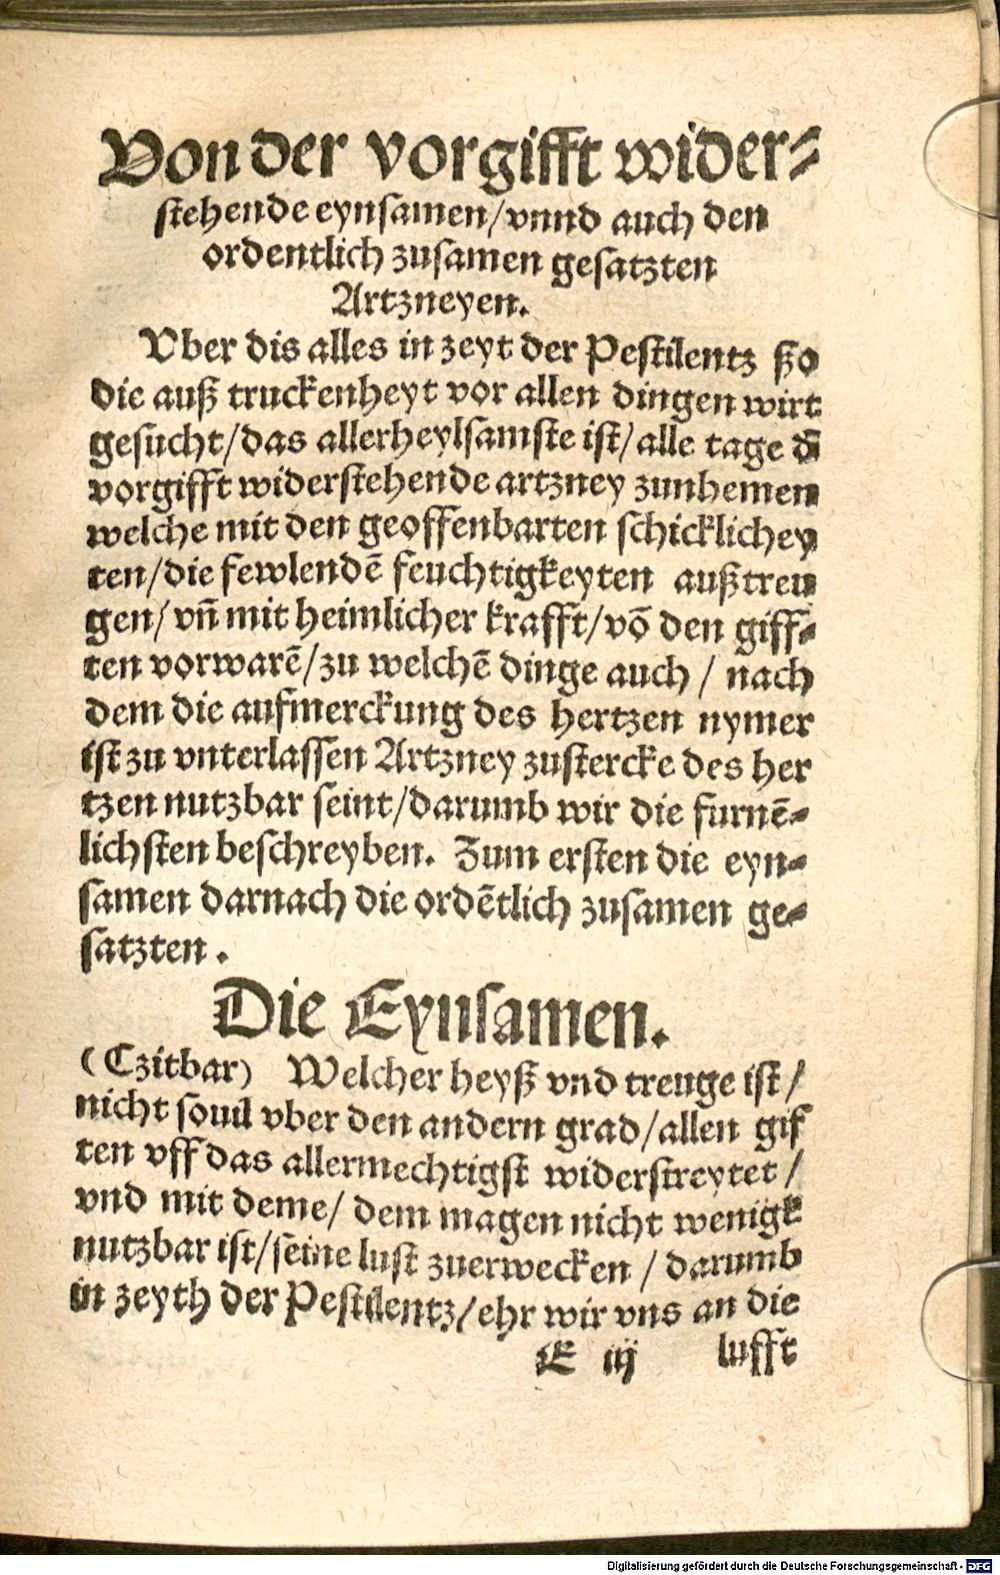 Von der vorgifft wider⸗
stehende eynsamen/vnnd auch den
ordentlich zusamen gesatzten
Artzneyen.
Vber dis alles in zeyt der Pestilentz ßo
die auß truckenheyt vor allen dingen wirt
gesucht/das allerheylsamste ist/alle tage dē
vorgifft widerstehende artzney zunhemen
welche mit den geoffenbarten schicklichey
ten/die fewlendē feuchtigkeyten außtreu
gen/vn̄ mit heimlicher krafft/vō den giff⸗
ten vorwarē/zu welchē dinge auch/ nach
dem die aufmerckung des hertzen nymer
ist zu vnterlassen Artzney zustercke des her
tzen nutzbar seint/darumb wir die furnē⸗
lichsten beschreyben. Zum ersten die eyn⸗
samen darnach die ordētlich zusamen ge⸗
satzten.
Die Eynsamen.
(Czitbar) Welcher heyß vnd treuge ist/
nicht souil vber den andern grad/allen gif
ten vff das allermechtigst widerstreytet/
vnd mit deme/ dem magen nicht wenigk
nutzbar ist/seine lust zuerwecken/ darumb
in zeyth der Pestilentz/ehr wir vns an die
E iij lufft
Digitalisierung gefördert durch die Deutsche Forschungsgemeinschaft - DFG